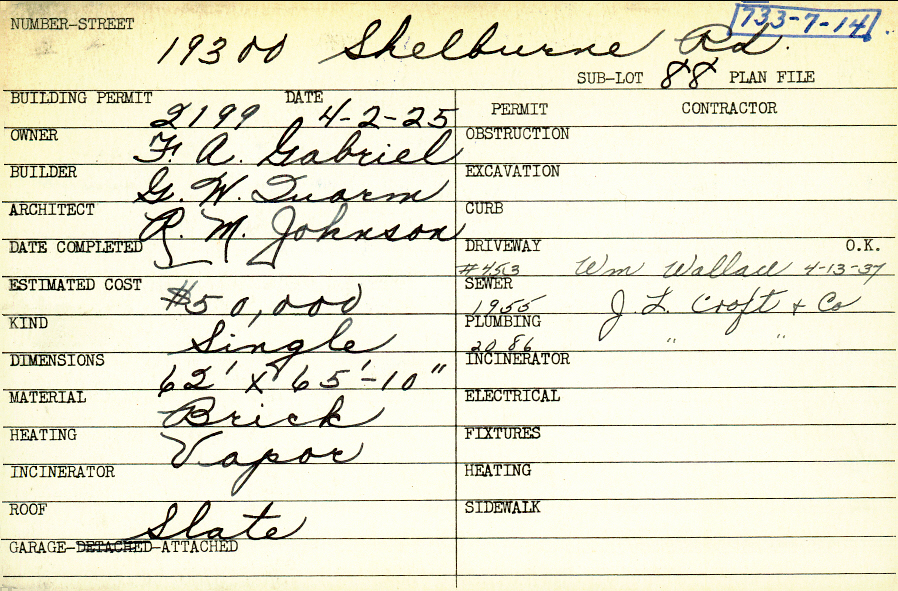 NUMBER-STREET 733-7-14
19300 Shelburne Rd.
SUB-LOT 88 PLAN FILE
BUILDING PERMIT 2199 DATE 4-2-25
OWNER F. A. Gabriel
BUILDER G. W. Quarm
ARCHITECT R. M. Johnson
DATE COMPLETED
ESTIMATED COST $50,000
KIND Single
DIMENSIONS 62' x 65'-10"
MATERIAL Brick
HEATING Vapor
INCINERATOR
ROOF Slate
GARAGE-DETACHED-ATTACHED
PERMIT CONTRACTOR
OBSTRUCTION
EXCAVATION
CURB
DRIVEWAY O.K.
#453 Wm Wallace 4-13-37
SEWER
1955 J. L. Croft & Co
PLUMBING
2086 " "
INCINERATOR
ELECTRICAL
FIXTURES
HEATING
SIDEWALK